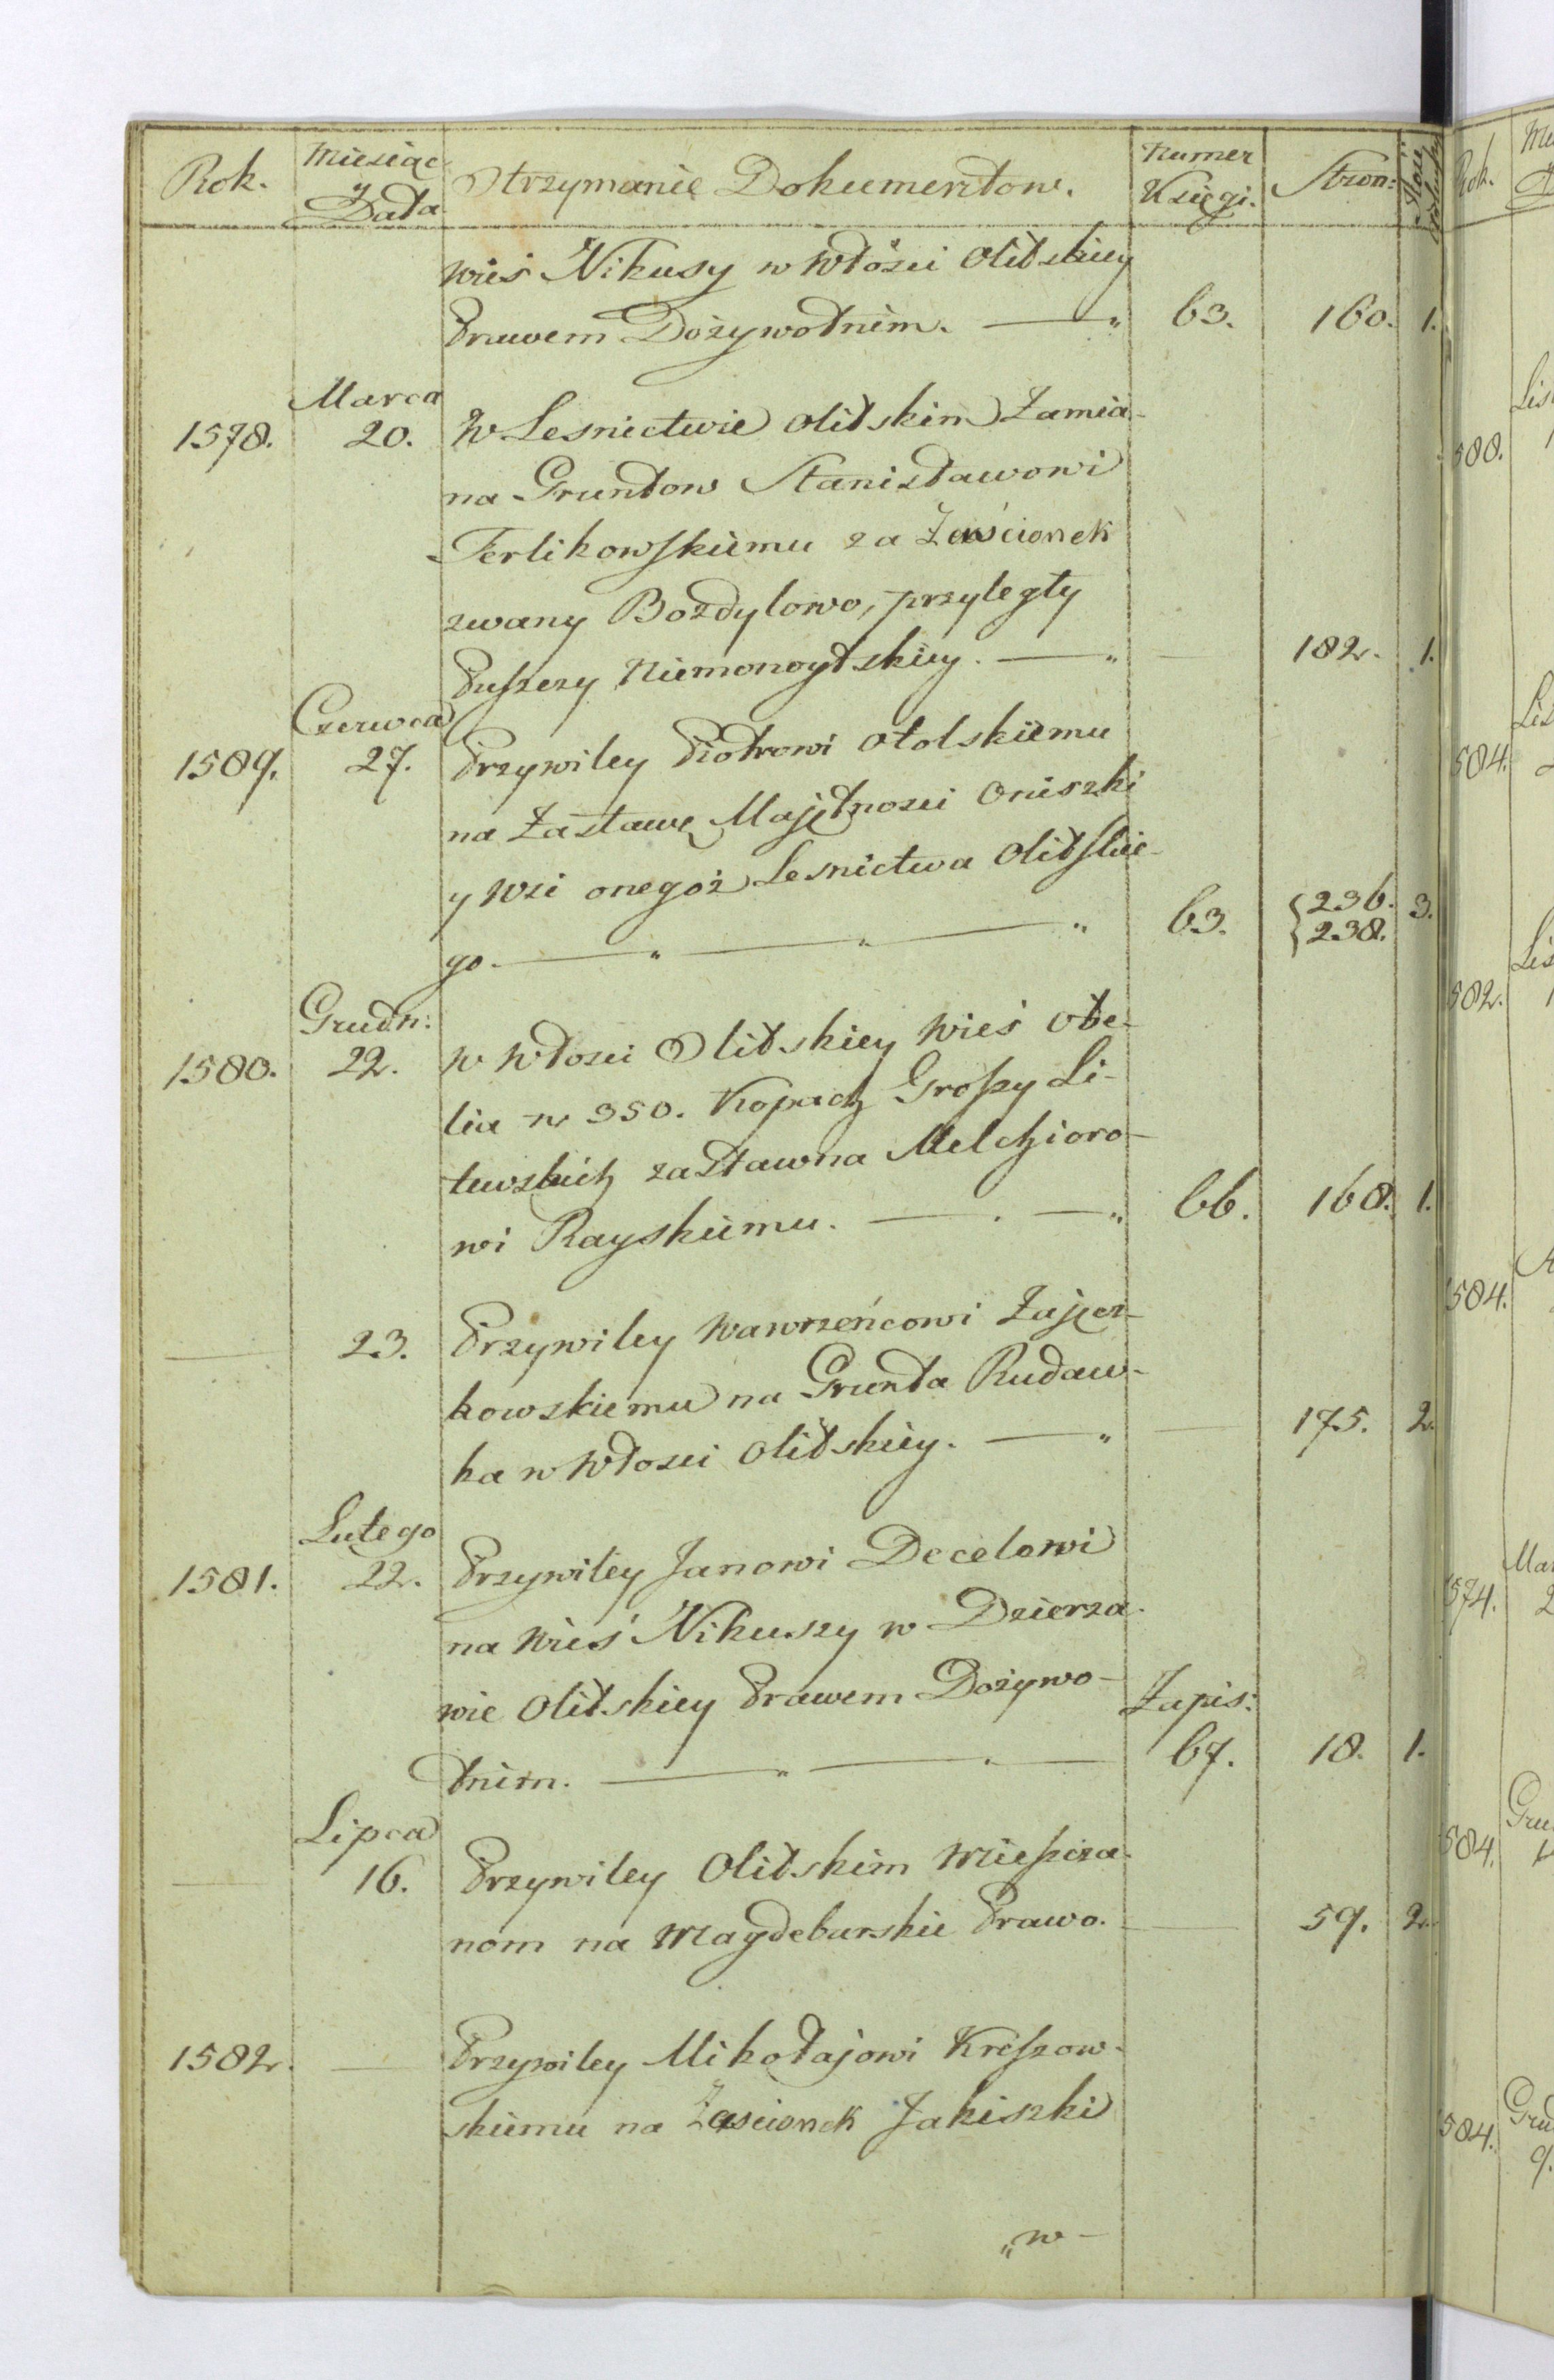 Rok. Miesiąc y Data Otrzymanie Dokumentow. Numer Księgi. Stron:
wieś Nikusy w Włości Olitskiey
Prawem Dożywotnim. — 63. 160. 1.
Marca
1578. 20. W Lesnictwie Olitskim Zamia-
na Gruntow Stanisławowi
Terlikowskiemu za Zaścionek
zwany Bozdylowo, przyległy
Puszczy Niemonoytskiey. — " — 182. 1.
Czerwca
1589. 27. Przywiley Piotrowi Otolskiemu
na Zastawę Majętnosci Oniszki
y Wsi onegoż Lesnictwa Olitskie-
go. — " — " — " 63. {236. 238. 3.
Grudn:
1580. 22. W Włosci Olitskiey Wieś Obe-
lia w 350. Kopach Groszy Li-
tewskich zastawna Melchioro-
wi Rayskiemu. — . — " 66. 168. 1.
— 23. Przywiley Wawrzeńcowi Zajęcz-
kowskiemu na Grunta Rudaw-
ka w Włosci Olitskiey. — " — 175. 2.
Lutego
1581. 22. Przywiley Janowi Decelowi
na Wieś Nikuszy w Dzierza-
wie Olitskiey Prawem Dożywo-
Zapis:
tnim. — " — " — 67. 18. 1.
Lipca
— 16. Przywiley Olitskim Mieszcza-
nom na Maydeburskie Prawo. — 59. 2.
1582. — Przywiley Mikołajowi Kreszow-
skiemu na Zascionek Jakiszki
„w-